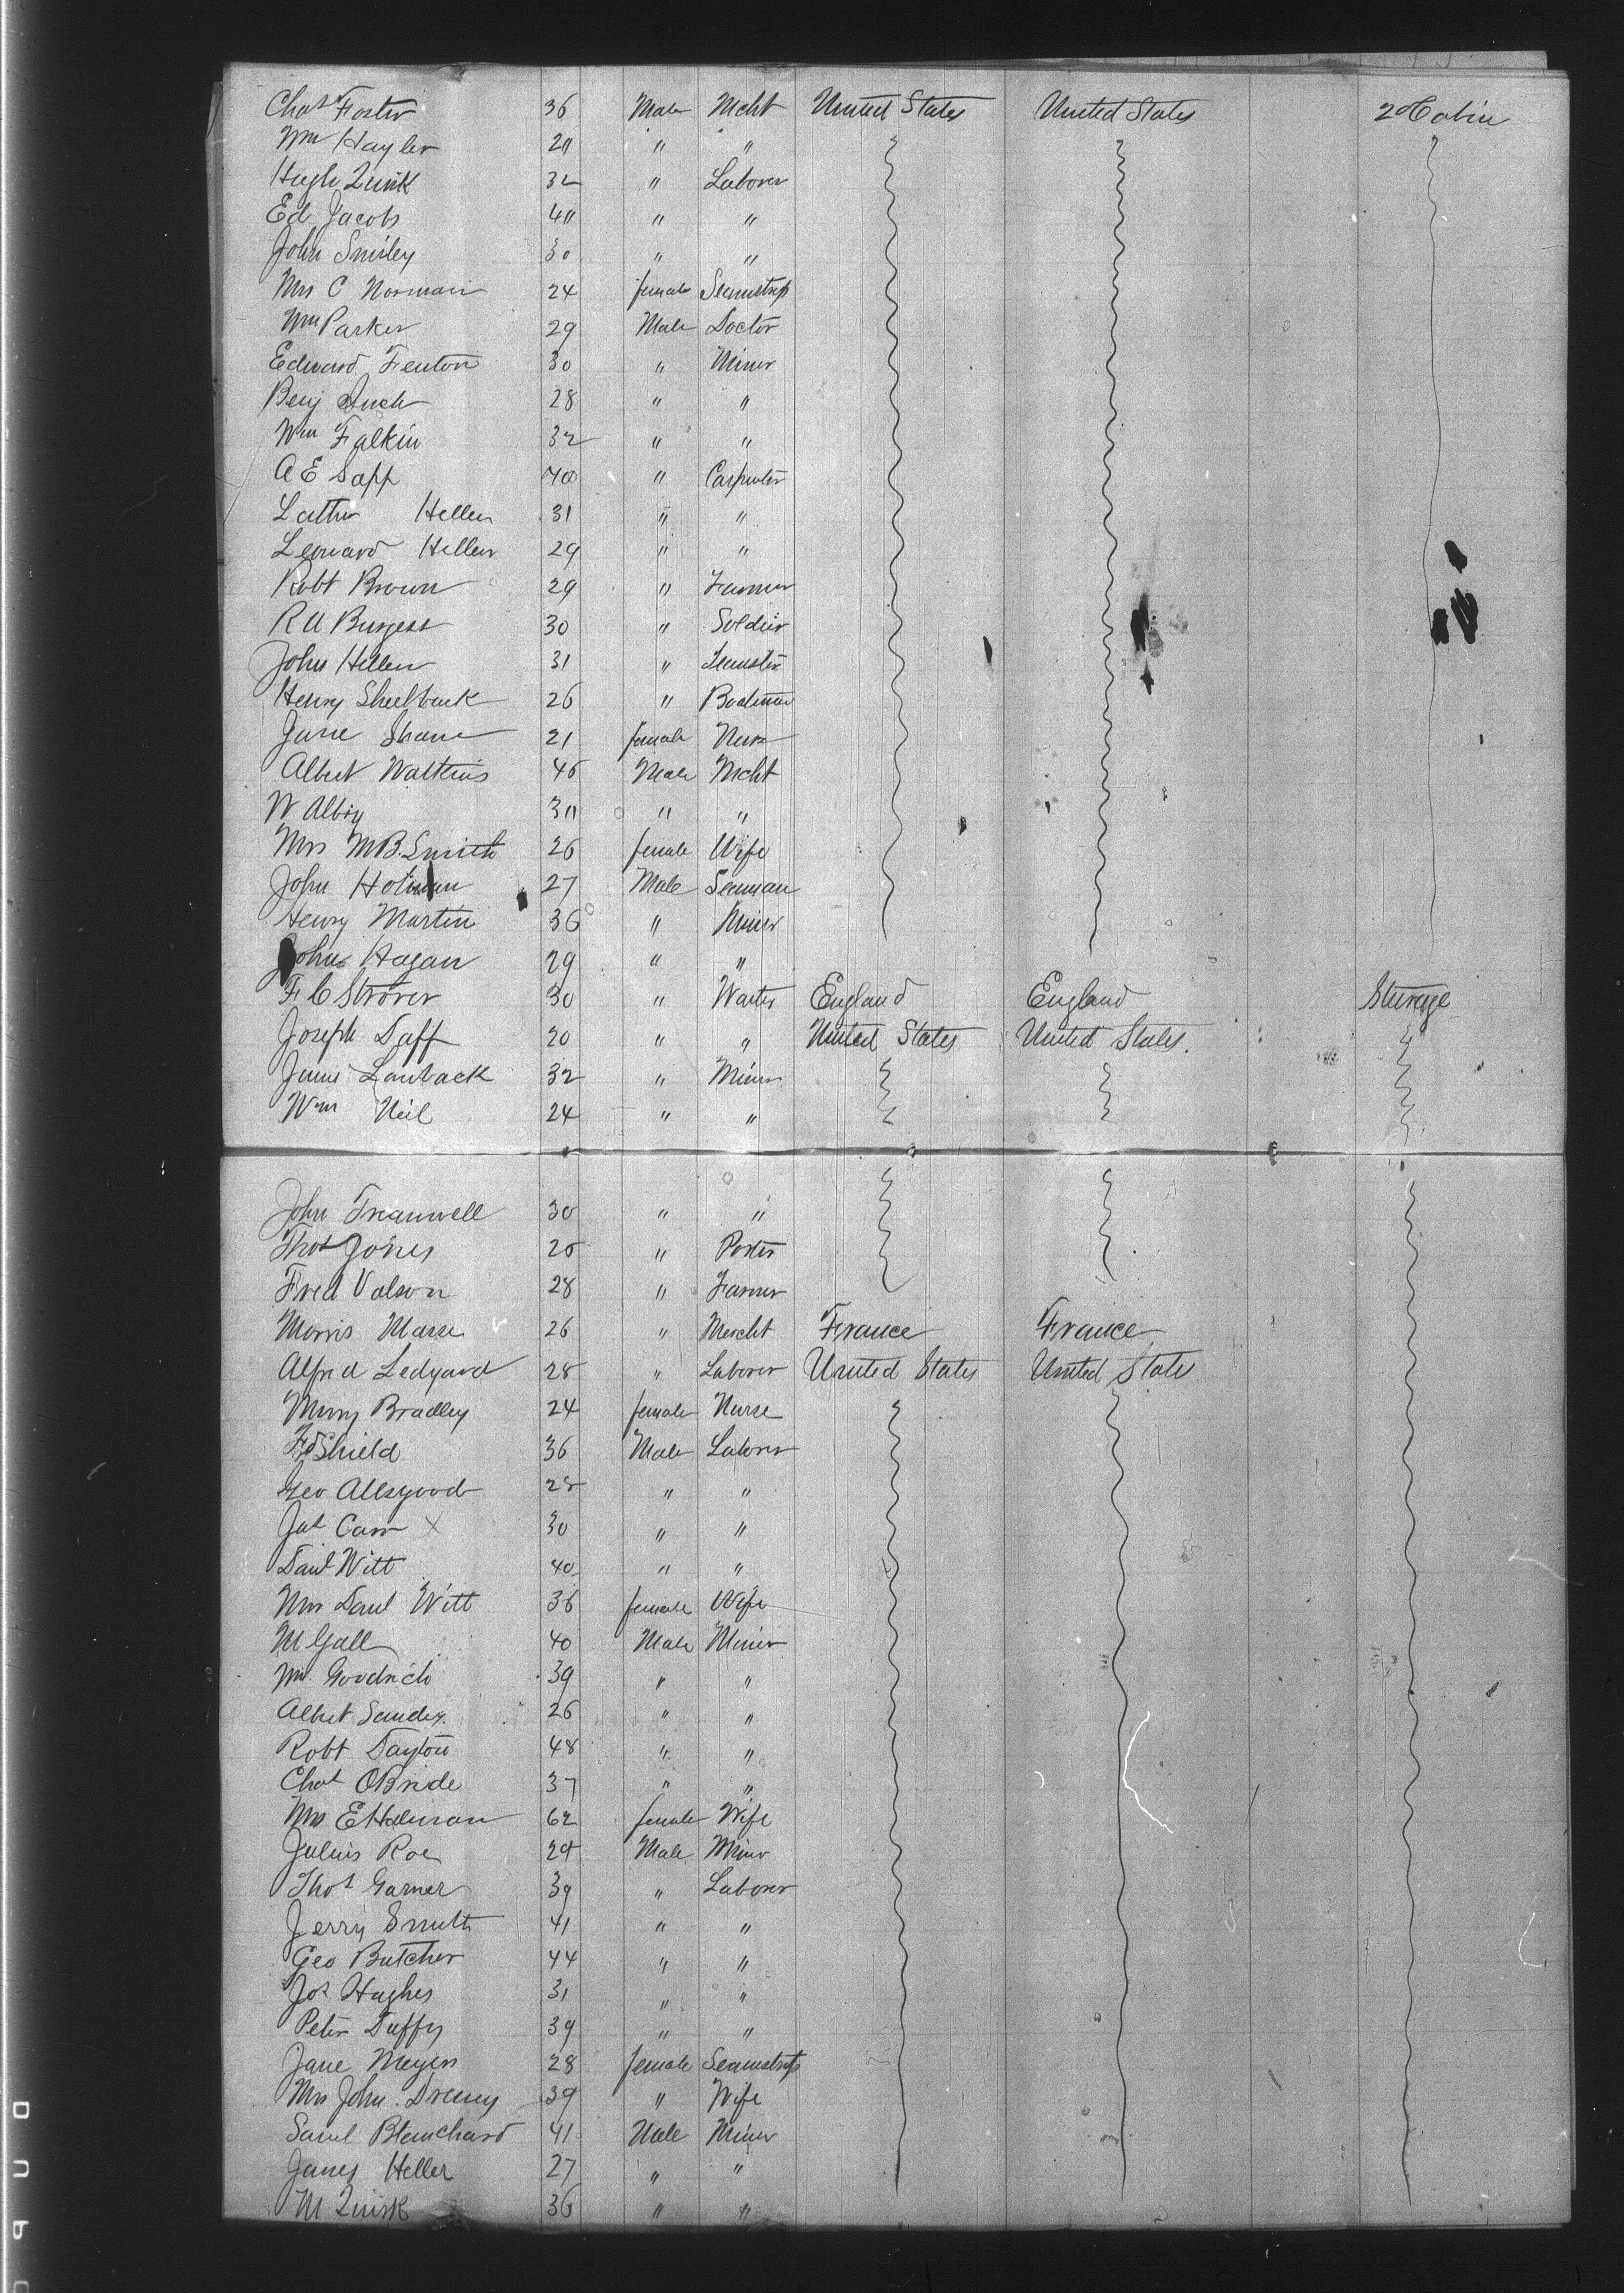 Chas Foster 36 Male Mcht United States United States 2d Cabin
Wm Hayler 211 " "
Hugh Quirk 32 " Laborer
Ed Jacobs 411 " "
John Smiley 30 " "
Mrs C Norman 24 female Seamstress
Wm Parker 29 Male Doctor
Edward Fenton 30 " Miner
Benj 28 " "
Wm Falkin 32 " "
A E Sapp 40 " Carpenter
Luther Hellen 31 " "
Leonard Heller 29 " "
Robt Brown 29 " Farmer
R A Burgess 30 " Soldier
John Hellen 31 " Teamster
Henry 26 " Boatman
Jane Shane 21 female Nurse
Albert Watkins 46 Male Mcht
W Alby 311 " "
Mrs M B. Smith 26 female Wife
John 27 Male Seaman
Henry Martin 36 " Miner
John Hagan 29 " "
F C Strover 30 " Waiter England England Sterage
Joseph Daff 20 " " United States United States.
Lauback 32 " Miner
Wm Neil 24 " "
John Tramwell 30 " "
Thos Jones 26 " Porter
Fred Volson 28 " Farmer
Morris Marse 26 " Mercht France France
Alfred Ledyard 28 " Laborer United States United State
Mary Bradley 24 female Nurse
Shield 36 Male Laborer
Geo Allsgood 28 " "
Jas Carr X 30 " "
Danl Witt 40 " "
Mrs Danl Witt 36 female Wife
M Gall 40 Male Miner
Goodrich 39 " "
Albert Sander 26 " "
Robt Dayton 48 " "
Chas OBride 37 " "
Mrs E Halman 62 female Wife
Julius Roe 24 Male Miner
Thos Garner 39 " Laborer
Jerry Smith 41 " "
Geo Butcher 44 " "
Jos Hughes 31 " "
Peter Duffy 39 " "
Jane Meyers 28 female Seamstress
Mrs John. 39 " Wife
Saml Blanchard 41 Male Miner
James Heller 27 " "
M Quirk 36 " "